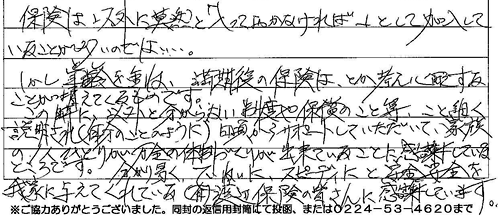 保険は以外に漠然と「入っておかなければ…」として加入して
いることが多いのでは…。
しかし 満期後の保険は
ことが増えてくるものです。
この時に、 分からない制度や保険のこと等、こと細く
説明され(自分のことのように) サポートしていただいて、家族
の一人ひとりが万全の体制づくりが出来ていることに感謝している
ところです。 分り易く、ていねいに、スピーディに と安全を
我家に与えてくれている(有)渡辺保険の皆さんに感謝しています。
※ご協力ありがとうございました。同封の返信用封筒にて投函、または0224-53-4620まで